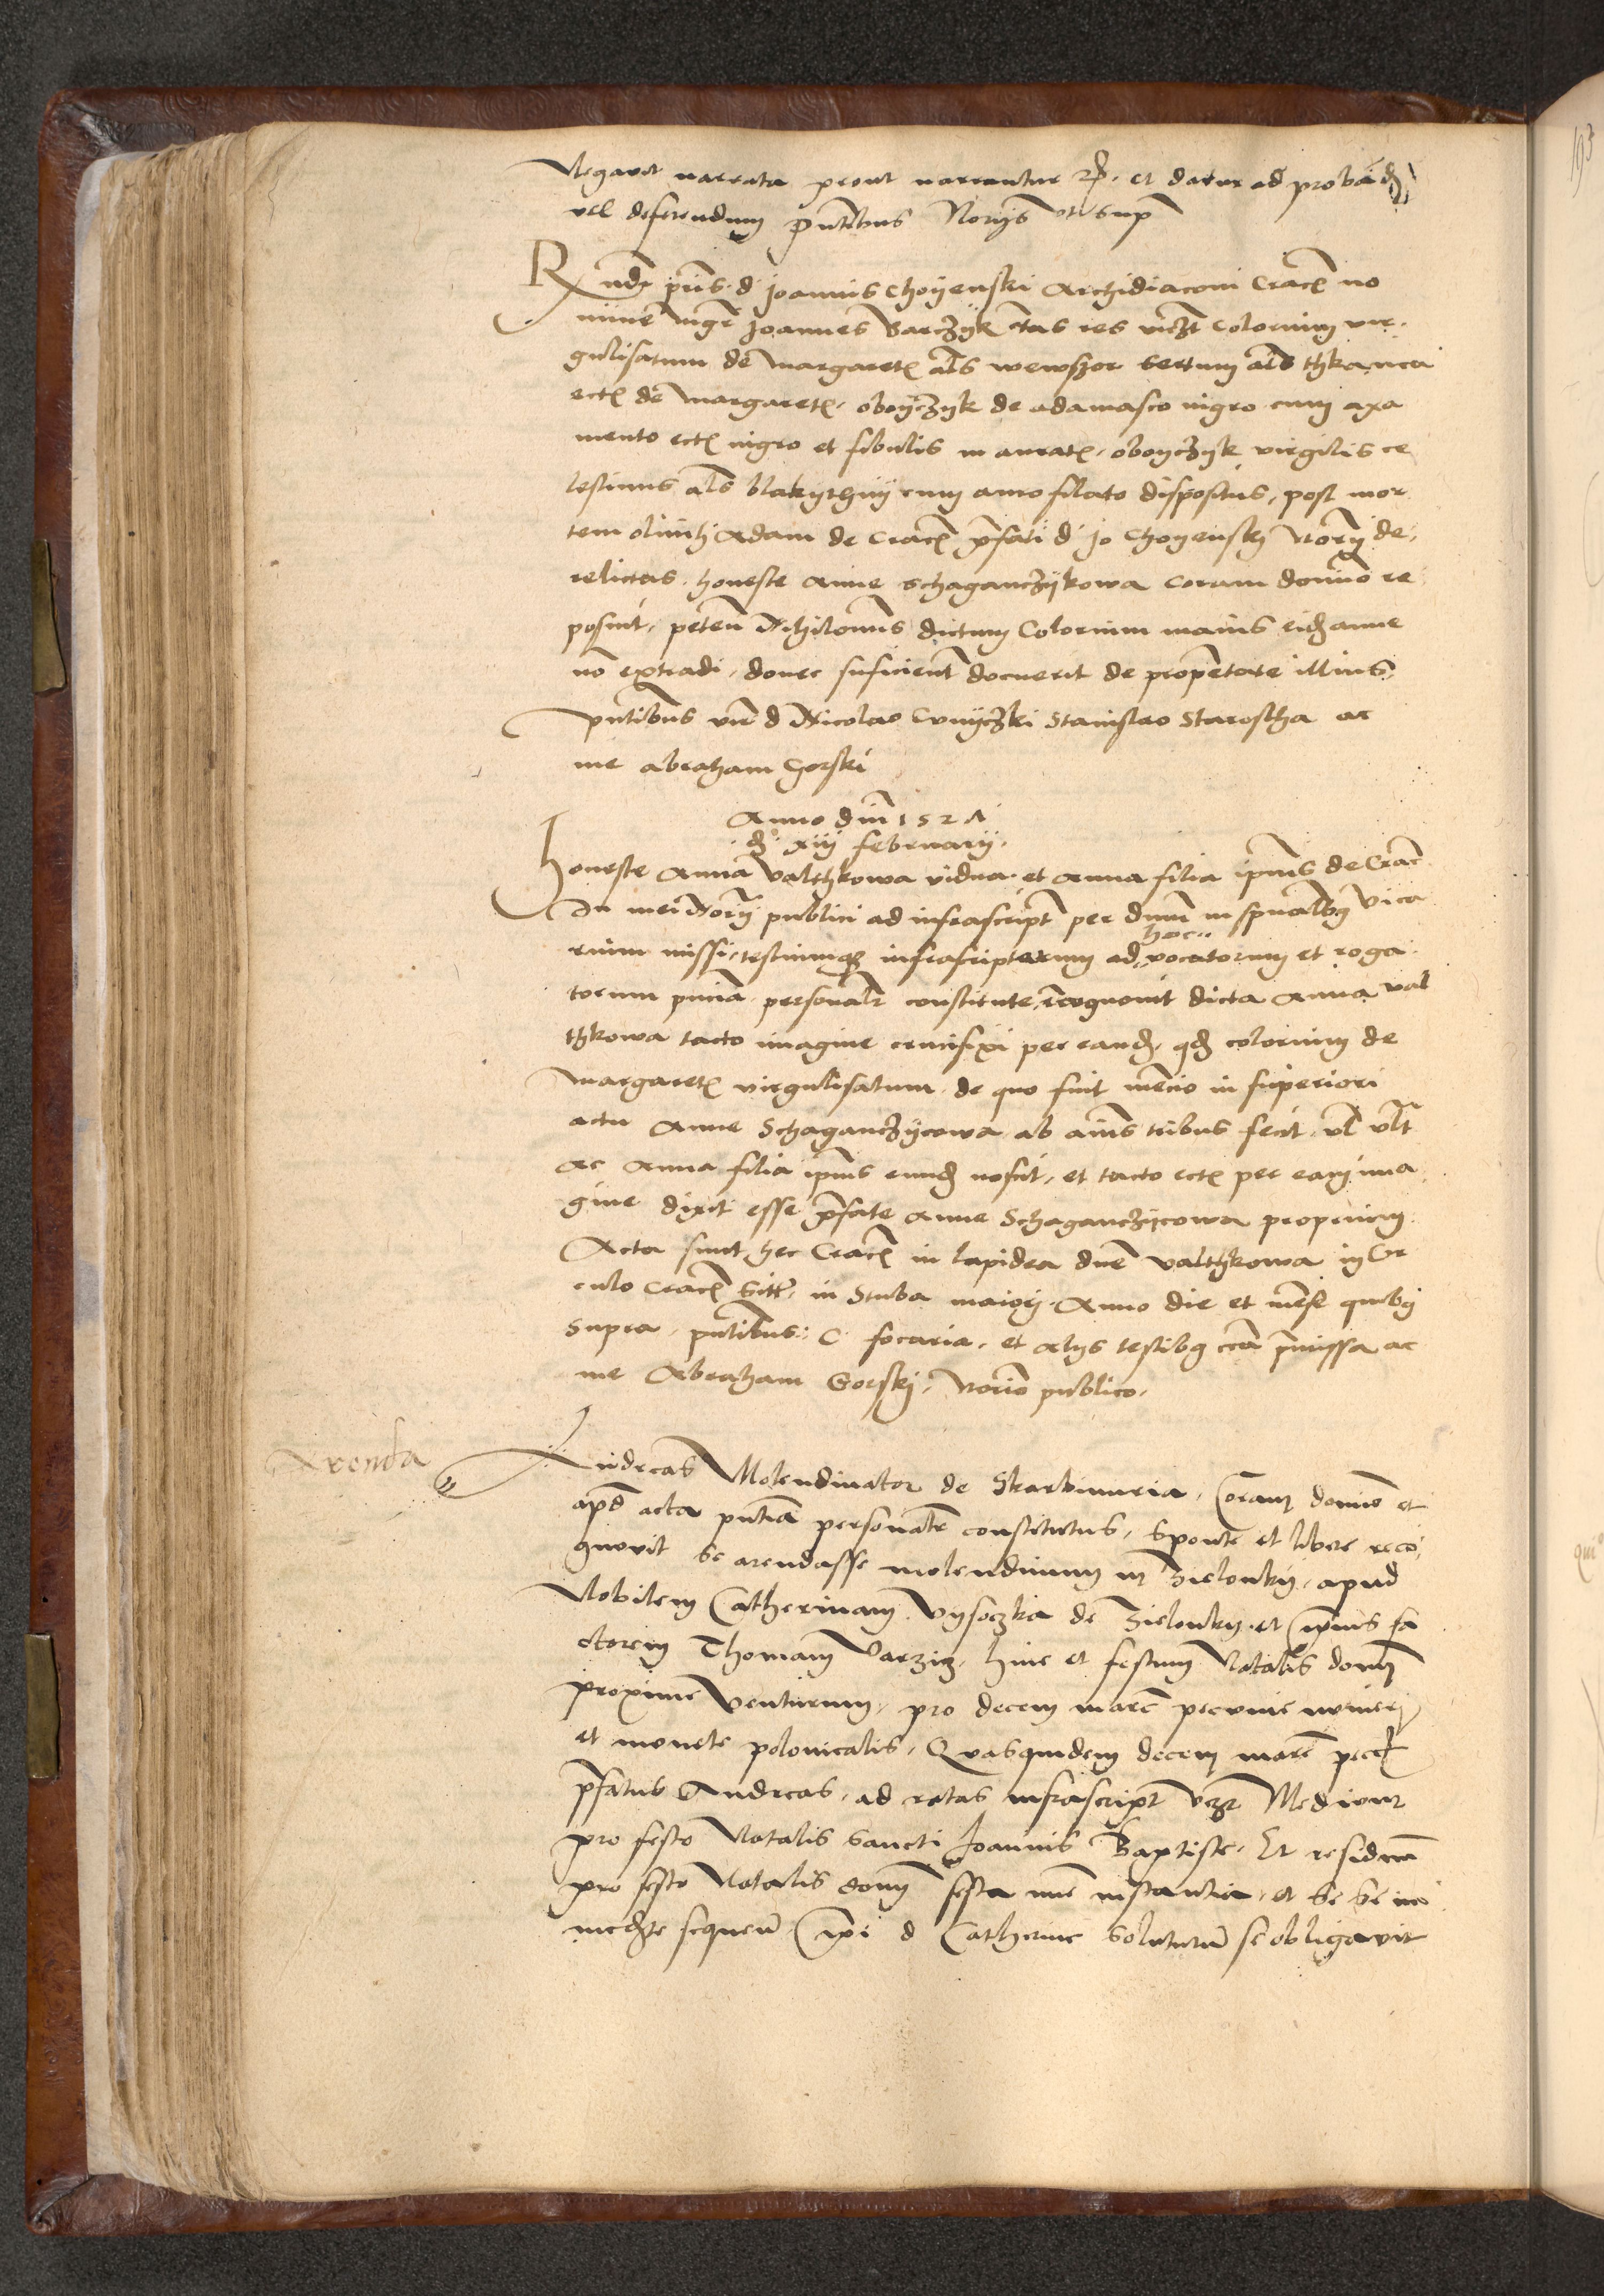 Negavit narrata prout narrantur rp. et datur ad proband
vel deferendum pntibus Norijs ut sup
Rndi pris d Joannis Choyenski Archidiaconi Cracn no
mine Mgr Joannes Barczyk ctas res viczt Colorium vir
gulisatum de Margaretis als wewszor sertum als thkanca
ectn de Margaretis, oboyczyk de adamasco nigro cum axa
mento ectn nigro et fibulis inauratis, oboyczyk virgilis ce
lestinus als blakythny cum auro filato dispositus, post mor
tem olim h Adam de Cracn pfati d Jo Choyensky Norij de
relictas honeste Anne Schaganczykowa Coram domino re
posuit, peten Nihilomus dictum Colorium maius eidem anne
no extradi, donec suficient docuerit de proprietate illius
pntibus ven d Nicolao Stanislao Starostha ac
me abraham Gorski
Anno dni 1521
d xiij februarij
honeste Anna Valthkowa vidua et Anna filia ipius de Crac
In mei Norij publici ad infrascript per dnum in spualibus vica
rium missi, testiumque infrascriptorum ad hoc vocatorum et roga
torum pncia personalr constitute, recognovit dicta Anna Val
thkowa tacto imagine crucifixi per eand, qd colorium de
Margaretis virgulisatum de quo fuit mencio in superiori
actu Anne Schaganczycowa ab annis tribus fecit, vl vltr
Ac Anna filia ipius eund noscit, et tacto ectn per eam ima
gine dixit esse pfate Anne Schaganczycowa proprium
Acta sunt hec Cracn in lapidea dne Valthkowa in Cir
culo Cracn sitt, in Stuba maiori Anno die et mense quibus
supra, pntibus C focaria, et alys testibus cca pmissa ac
me Abraham Gorskj, Norio publico.
Arenda
Andreas Molendinator de Skarbimiria, Coram domino et
apd acta pntia personalr constitutus, sponte et libere reco
gnovit se arendasse molendinum in Zielonky, apud
Nobilem Catherinam Vysoczka de Zielonky et ipius fa
ctorem Thomam Varzicz, hinc et festum Natalis domij
proxime Venturum, pro decem marc pecunie numeri
et monete polonicalis, Quasquidem decem marc pecc
pfatus Andreas, ad ratas infrascript vczt Mediam
pro festo Natalis sancti Joannis Baptiste, Et residuam
pro festo Natalis domij festa nunc instantia, et se se im
mediate sequen ipi d Catherine soluturum se obligavit